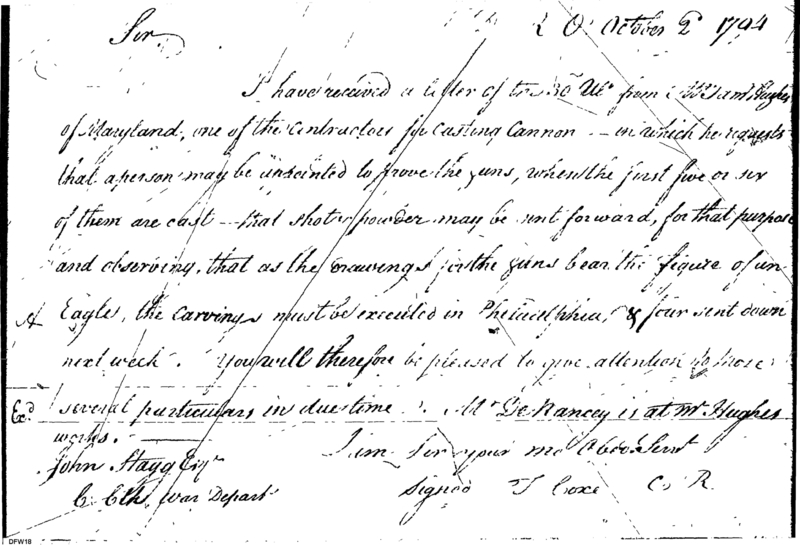 R. O. October 2d 1794
Sir,
I have received a letter of the 30 Ulo from Mr Saml Hughes
of Maryland, one of the contractors for casting Cannon — in which he requests
that a person may be appointed to prove the guns, when the first five or six
of them are cast — that shot & powder may be sent forward, for that purpose
and observing, that as the drawings for the guns bear the figure of an
A Eagle, the carvings must be executed in Philadelphia, & four sent down
next week. You will therefore be pleased to give attention to those
Exd several particulars in due time. Mr DeRancey is at Mr Hughes
works. —
I am Sir your mo Obed Servt
John Stagg Esqr
C. Clk. War Depart
Signed T Coxe C. R.
DFW18